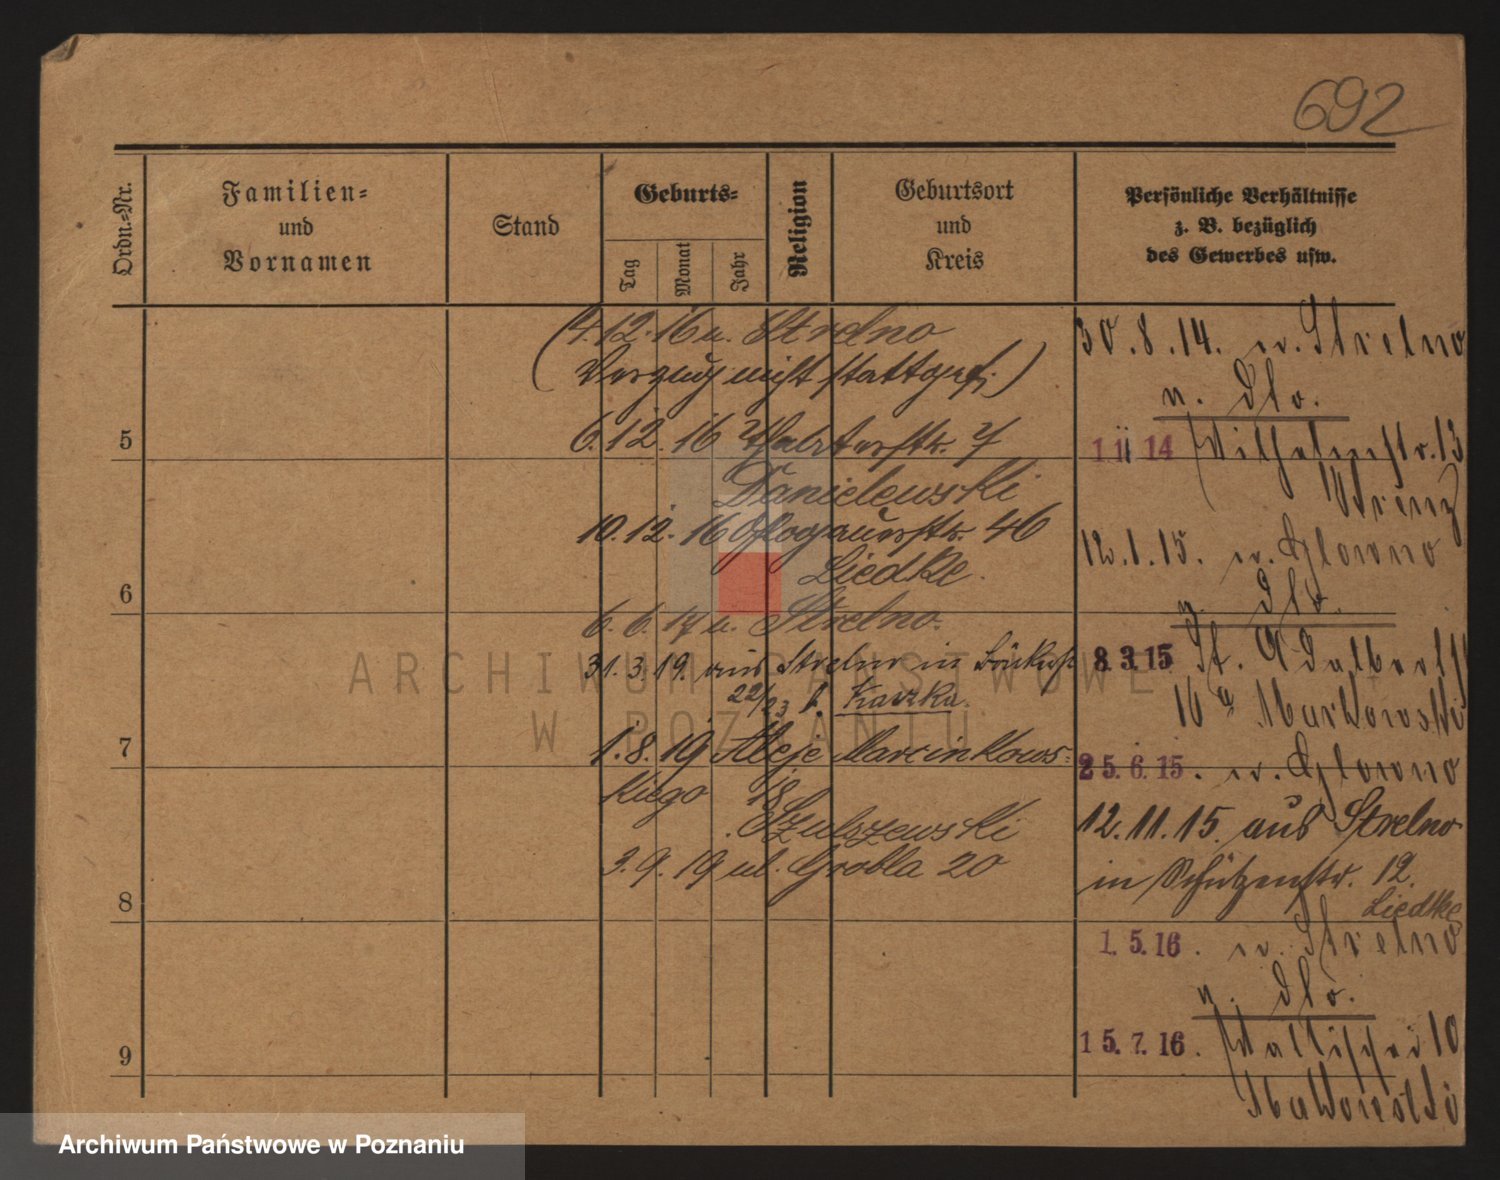 692
Ordn.-Nr.
Familien-
und
Vornamen
Stand
Geburts-
Tag
Monat
Jahr
Religion
Geburtsort
und
Kreis
Persönliche Verhältnisse
z. B. bezüglich
des Gewerbes usw.
(4.12.16 n. Strelno
Verzug nicht stattgef.)
5
6.12.16 Halbdorfstr. 7
Danielewski
10.12.16 Glogauerstr. 46
Liedke.
6
6.6.17 n. Strelno.
31.3.19. aus Strelno in
22/23 b. Kaczka.
7
1.8.19 Aleje Marcinkows-
kiego 18
Szulszewski
3.9.19 ul. Grobla 20
8
9
30.8.14. n. Strelno
n. dto.
1.11.14 Wilhelmstr. 13
12.1.15. n. Glowno
n. dto.
8.3.15 St. Adalbertst
16a Markowski
25.6.15. n. Glowno
12.11.15. aus Strelno
in Schützenstr. 12.
Liedtke
1.5.16. n. Strelno
n. dto.
15.7.16. Wallischei 10
Makowski
ARCHIWUM PAŃSTWOWE
W POZNANIU
Archiwum Państwowe w Poznaniu